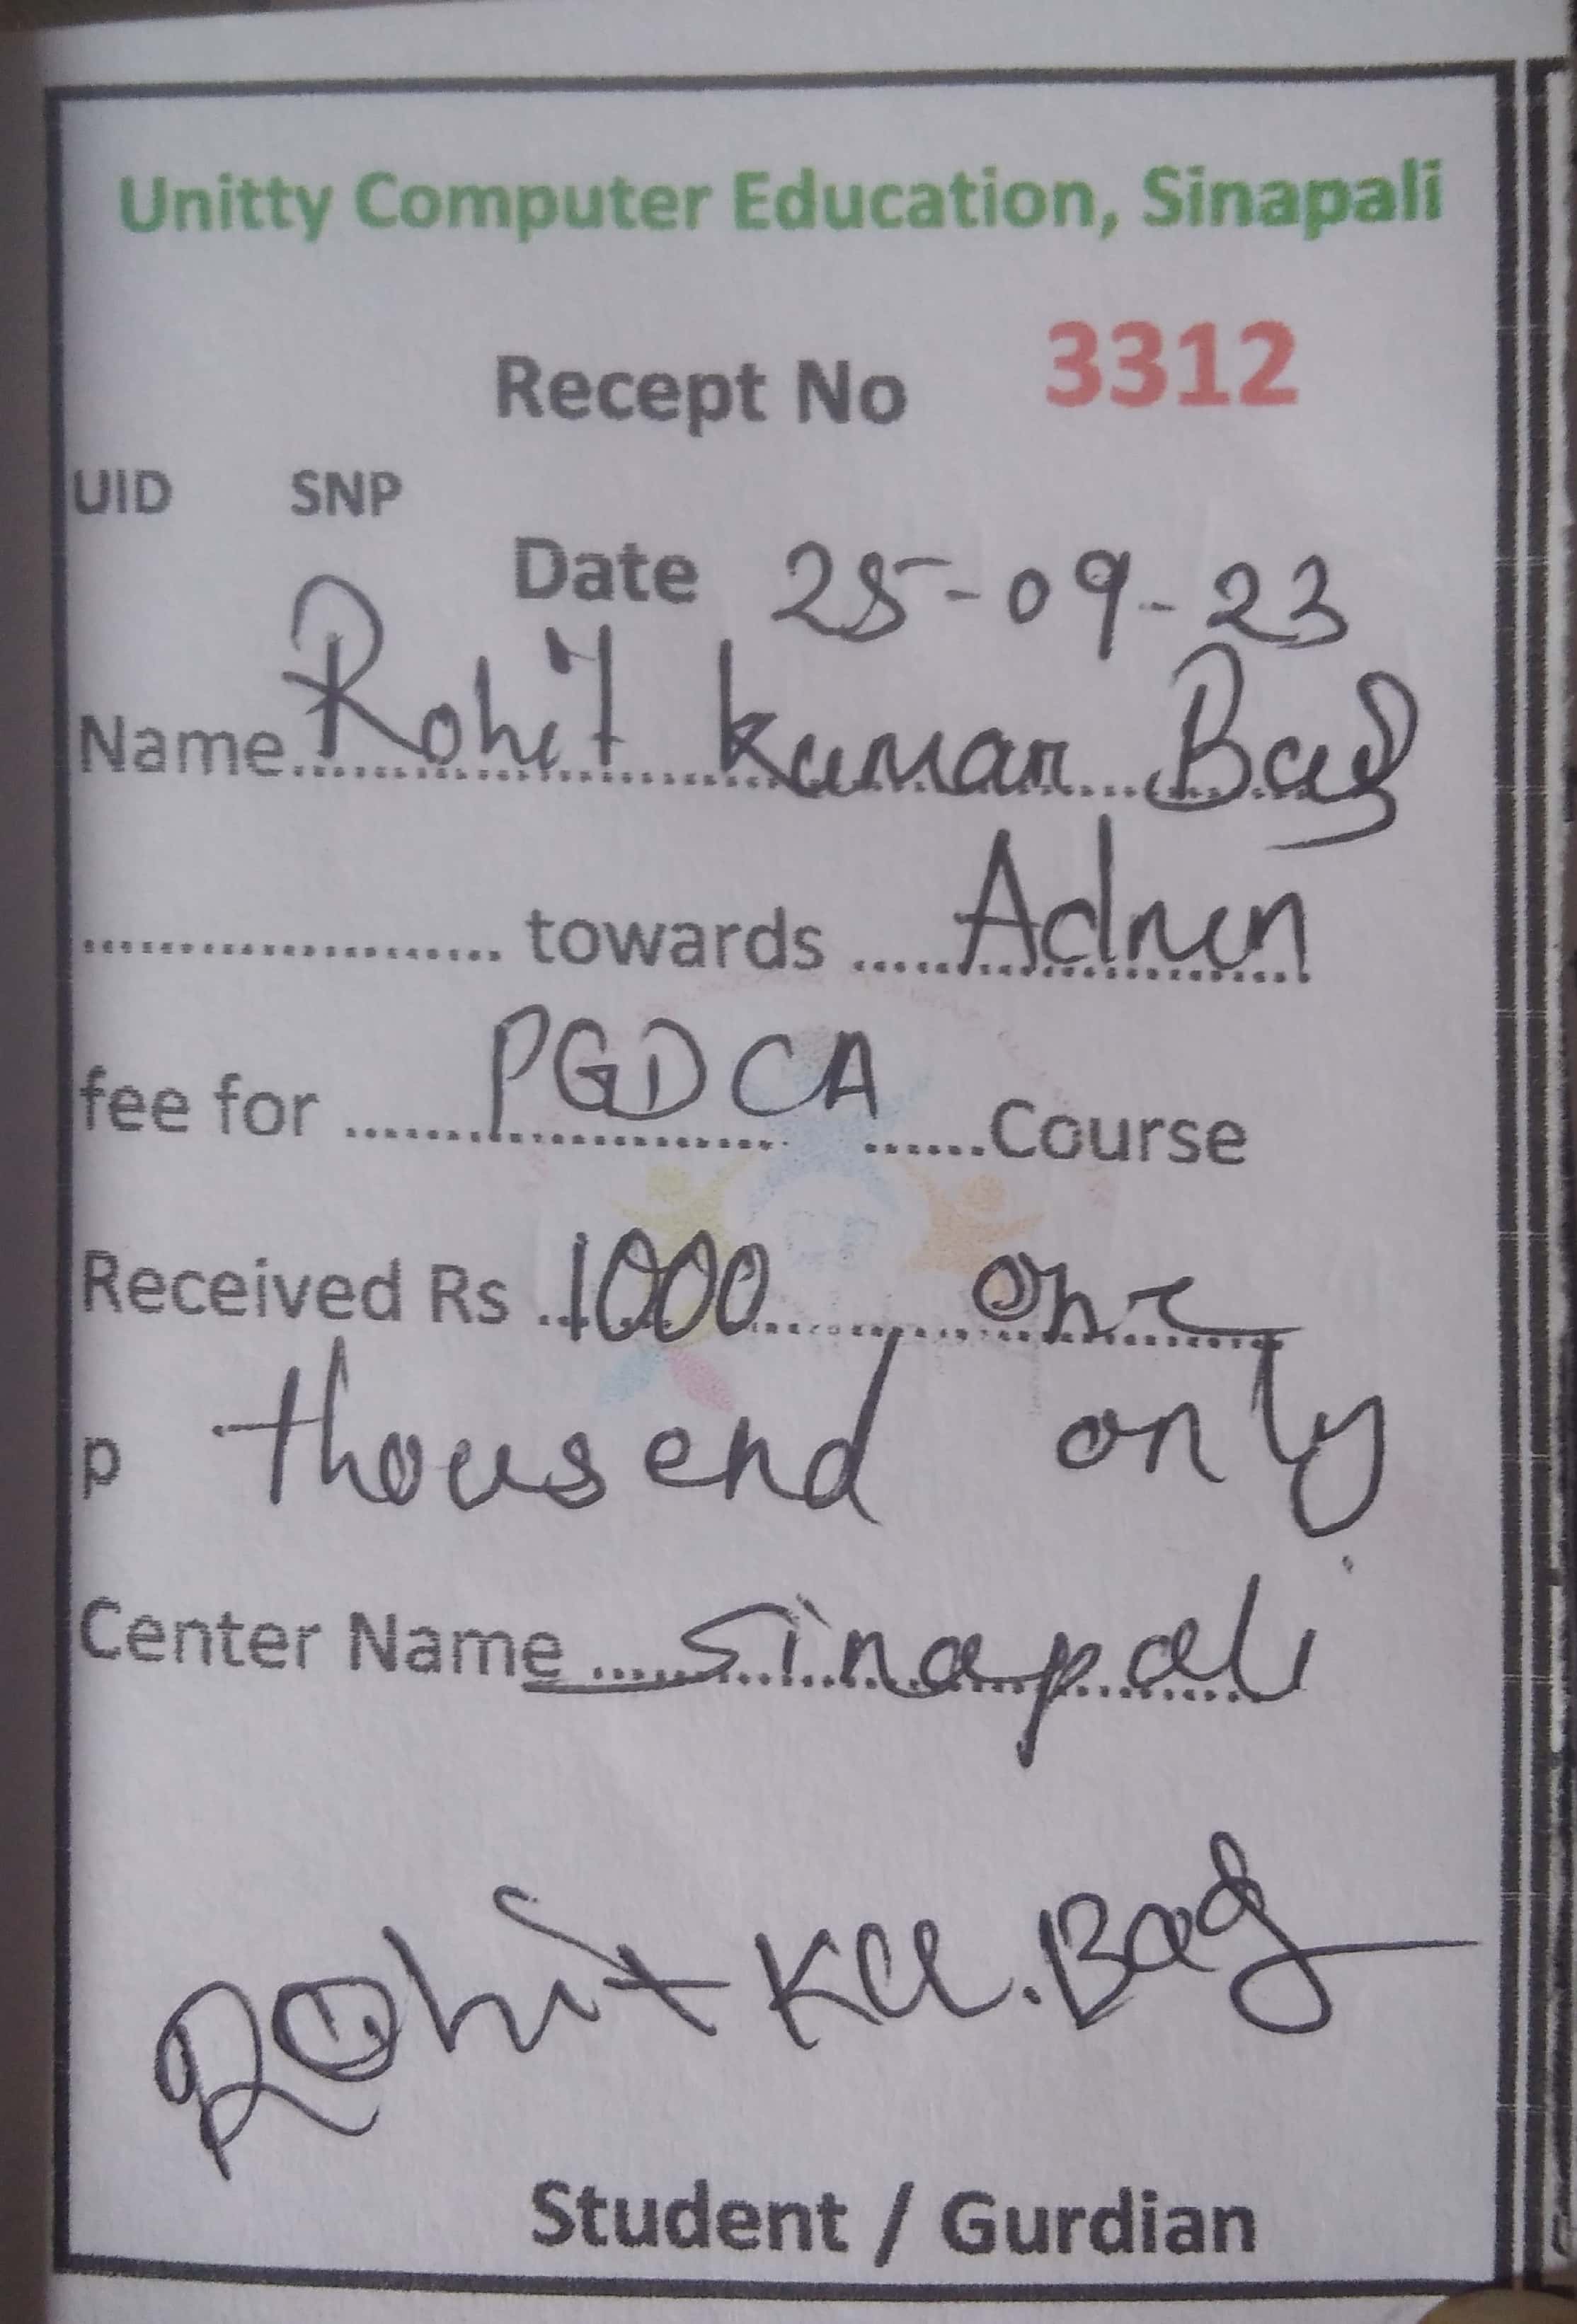 Unitty Computer Education, Sinapali
Recept No 3312
UID SNP
Date 25-09-23
Name Rohit Kumar Bag
towards Admn
fee for PGDCA Course
Received Rs 1000 one
p thousend only
Center Name Sinapali
Rohit KU. Bag
Student / Gurdian